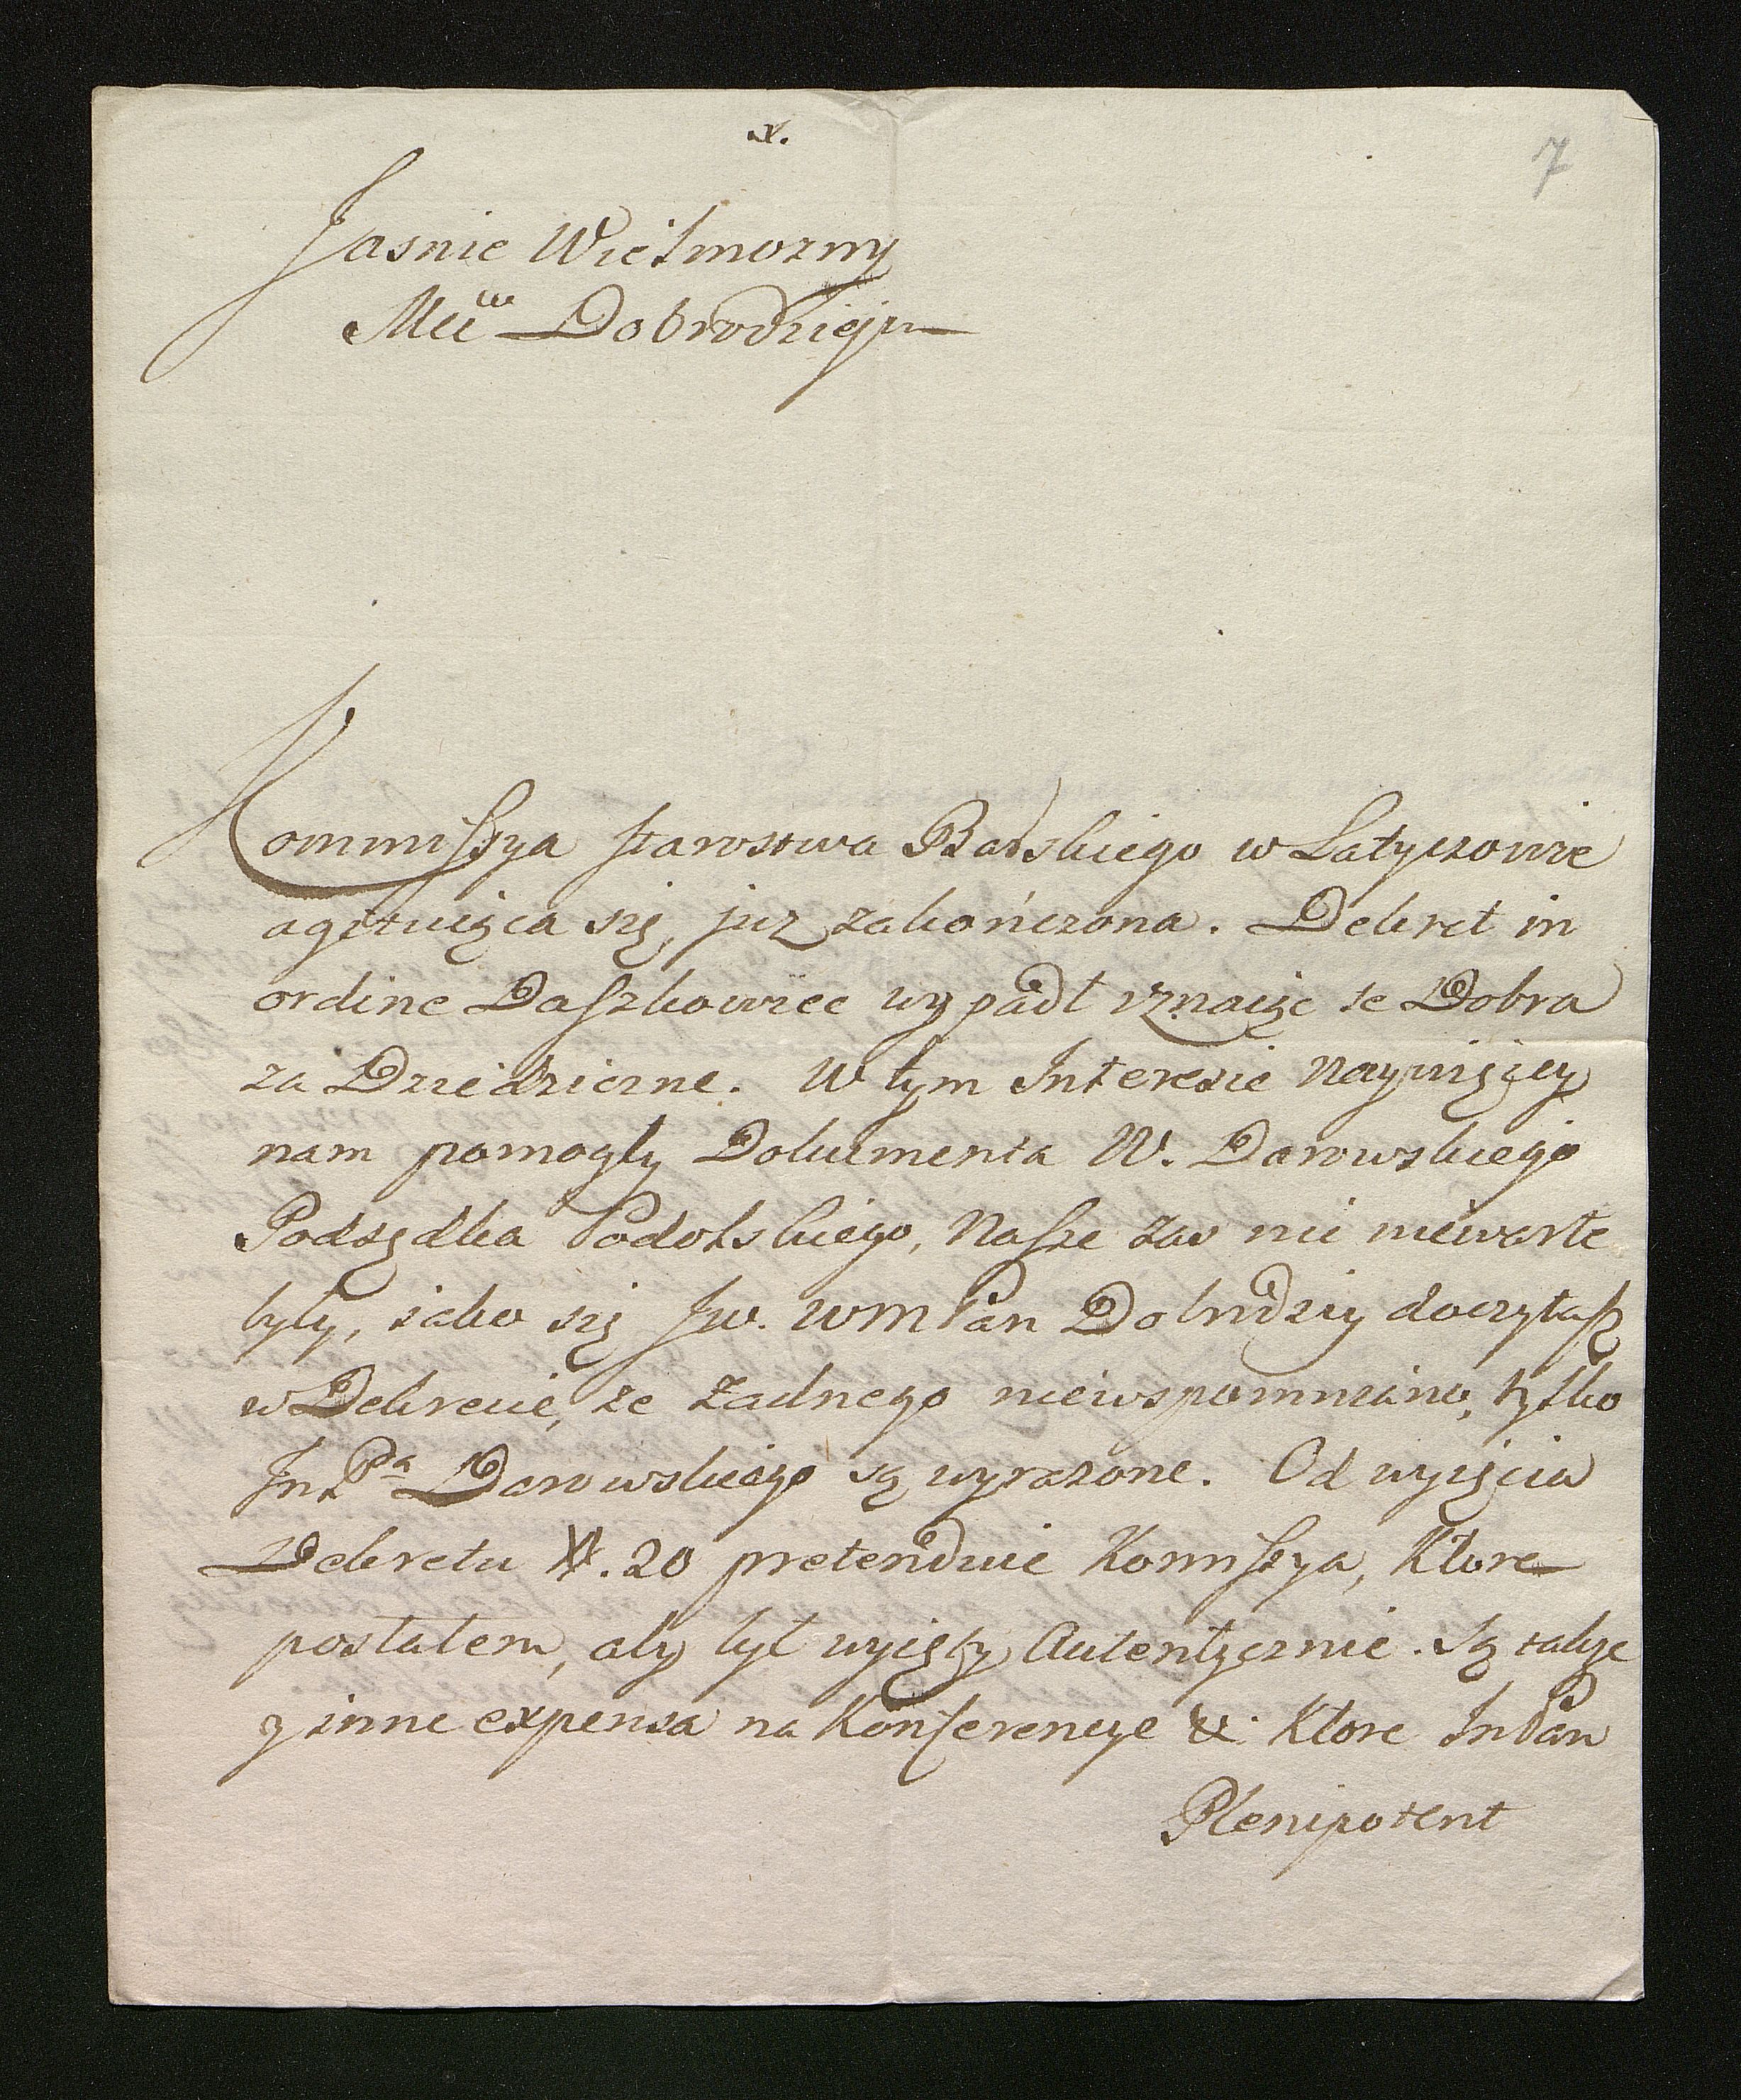 7
Jasnie Wielmozny
Mci Dobrodzieju
Kommissya starostwa Barskiego w Latyczowie
agituiąca się, juz zakończona. Dekret in
ordine Daszkowiec wypadł vznaiąc te Dobra
za Dziedziczne. W tym Interesie Naywięcey
nam pomogły Dokumenta W. Darowskiego
Podsędka Podolskiego, Nasze zas nic niewarte
były, iako się Jw. WMPan Dobrodziey doczytasz
w Dekrecie, ze zadnego niewspomniano, tylko
Im Pa Darowskiego są wyrazone. Od wyięcia
Dekretu 20 pretenduie Komissya, Ktore
postalem, aby był wyięty Autentycznie. Są takze
y inne expensa na Konferencye &. Ktore ImPan
Plenipotent